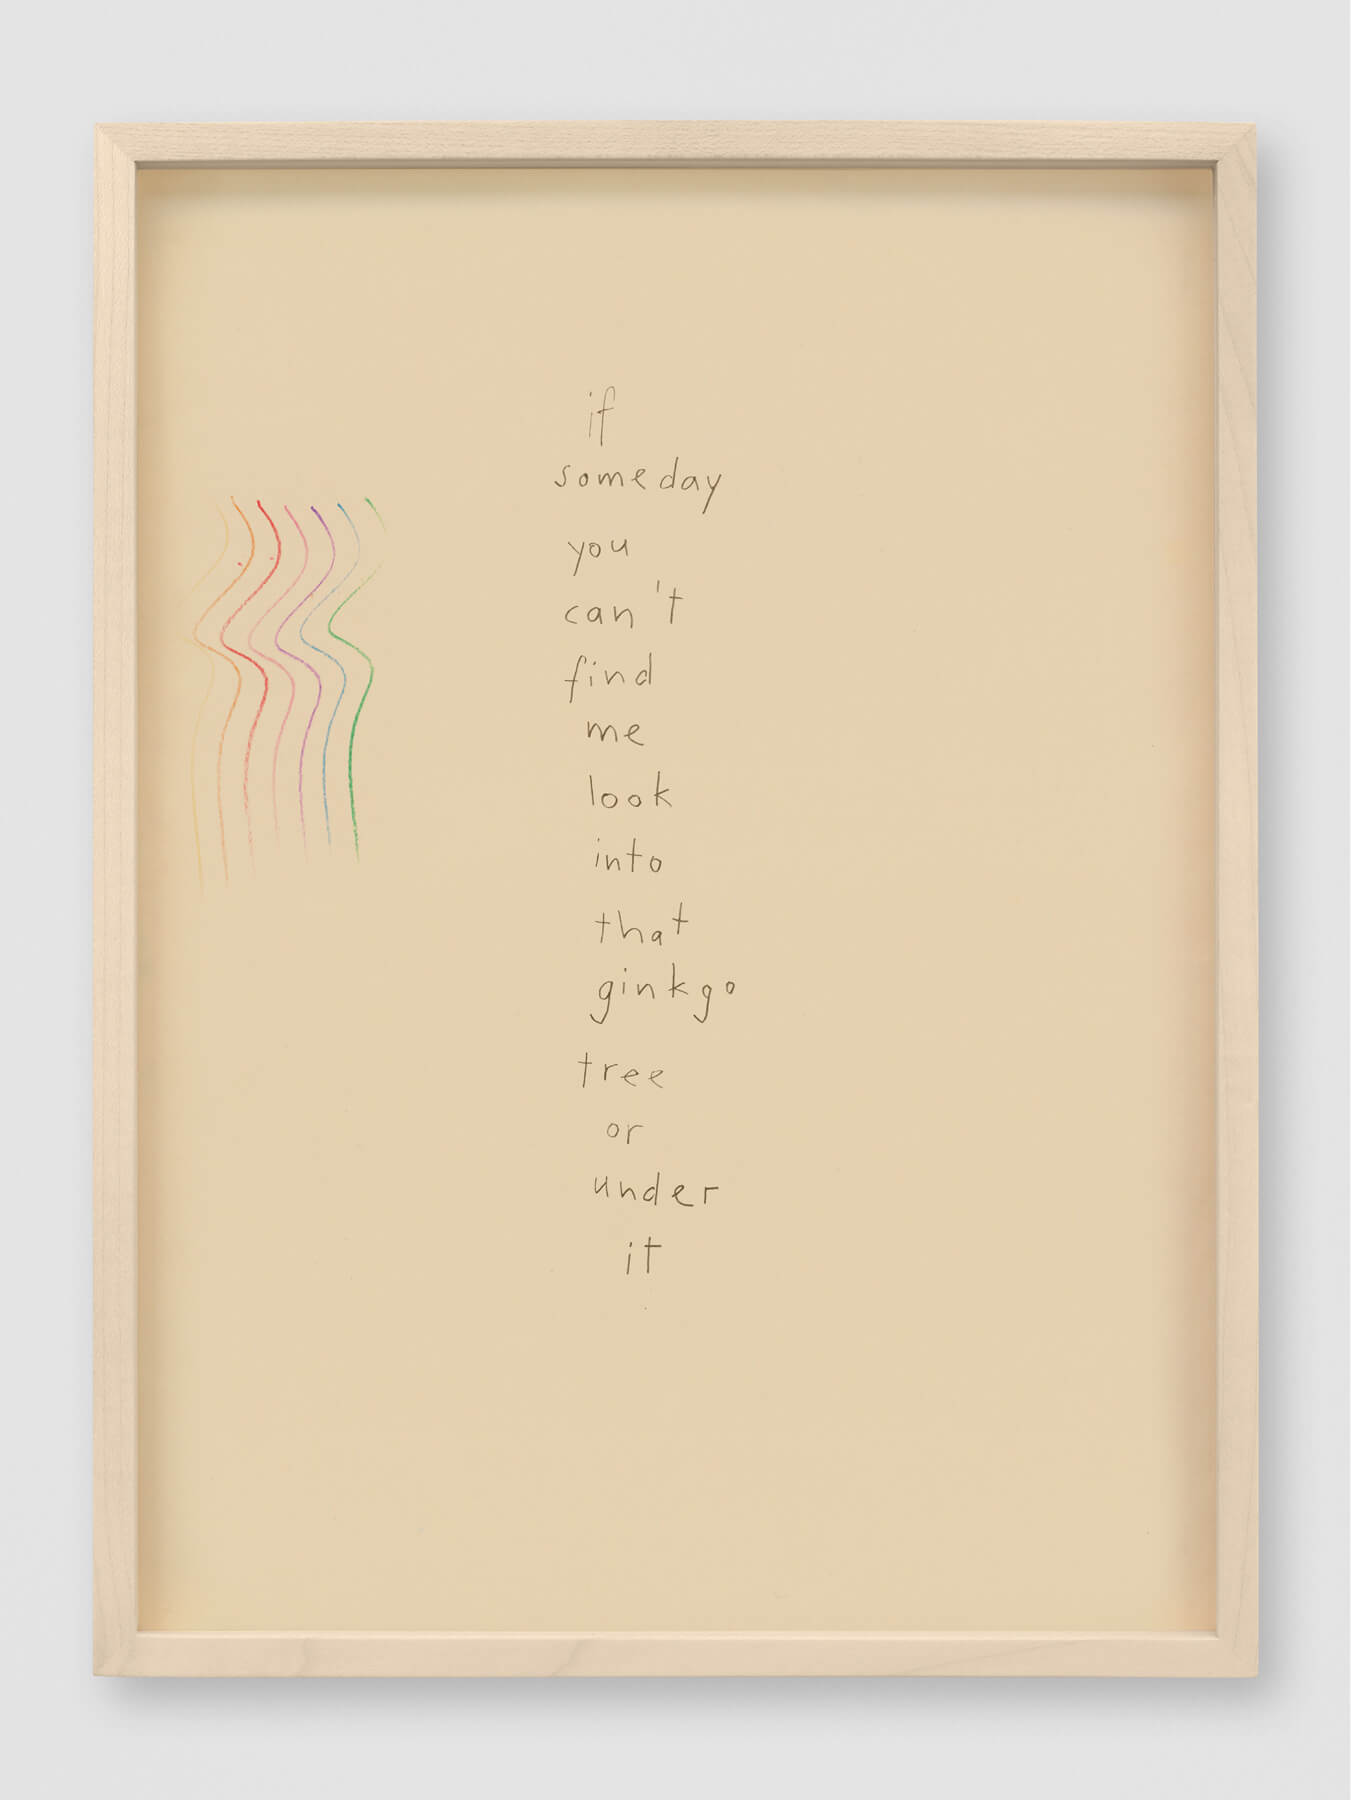 if
someday
you
can't
find
me
look
into
that
ginkgo
tree
or
under
it